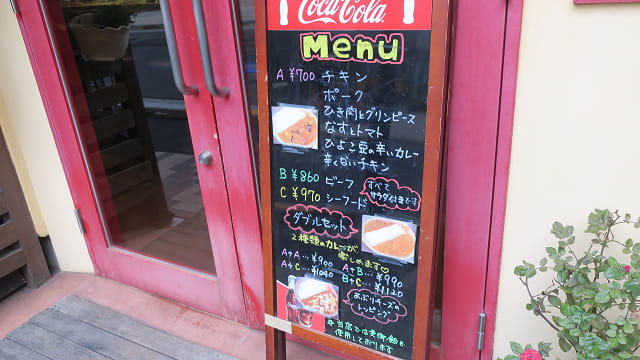 Coca-Cola
Menu
A ¥700 チキン
ポーク
ひき肉とグリンピース
なすとトマト
ひよこ豆の辛いカレー
辛くないチキン
B ¥860 ビーフ
C ¥970 シーフード
すべて
サラダ付きです
ダブルセット
2種類のカレーが
楽しめます♡
A+A…¥900 A+B…¥990
A+C…¥1090 B+C…¥1120
あぶりチーズの
トッピング
当店では麦御飯を
使用しております